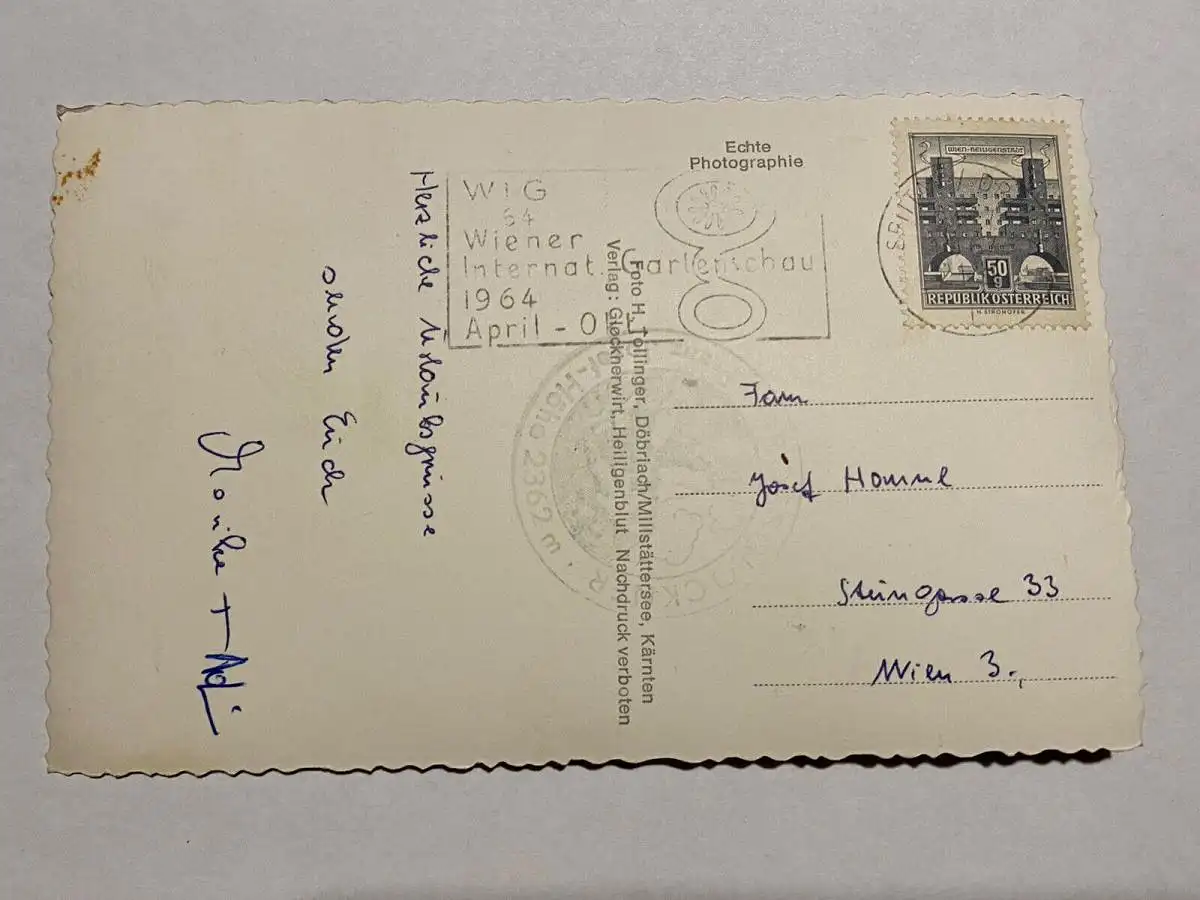 Echte
Photographie
WIEN-HEILIGENSTADT
50
g
REPUBLIK ÖSTERREICH
H. STROHOFER
WIG
64
Wiener
Internat. Gartenschau
1964
April - Okt
Herzliche Urlaubsgrüsse
senden Euch
Monika + Adi
Foto H. Tollinger, Döbriach/Millstättersee, Kärnten
Verlag: Glocknerwirt, Heiligenblut Nachdruck verboten
2362 m
Fam
Josef Hommel
Steingasse 33
Wien 3.,